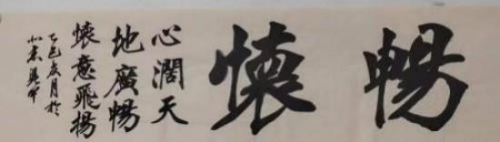 暢懷
心濶天
地廣暢
懷意飛揚
乙巳
月於